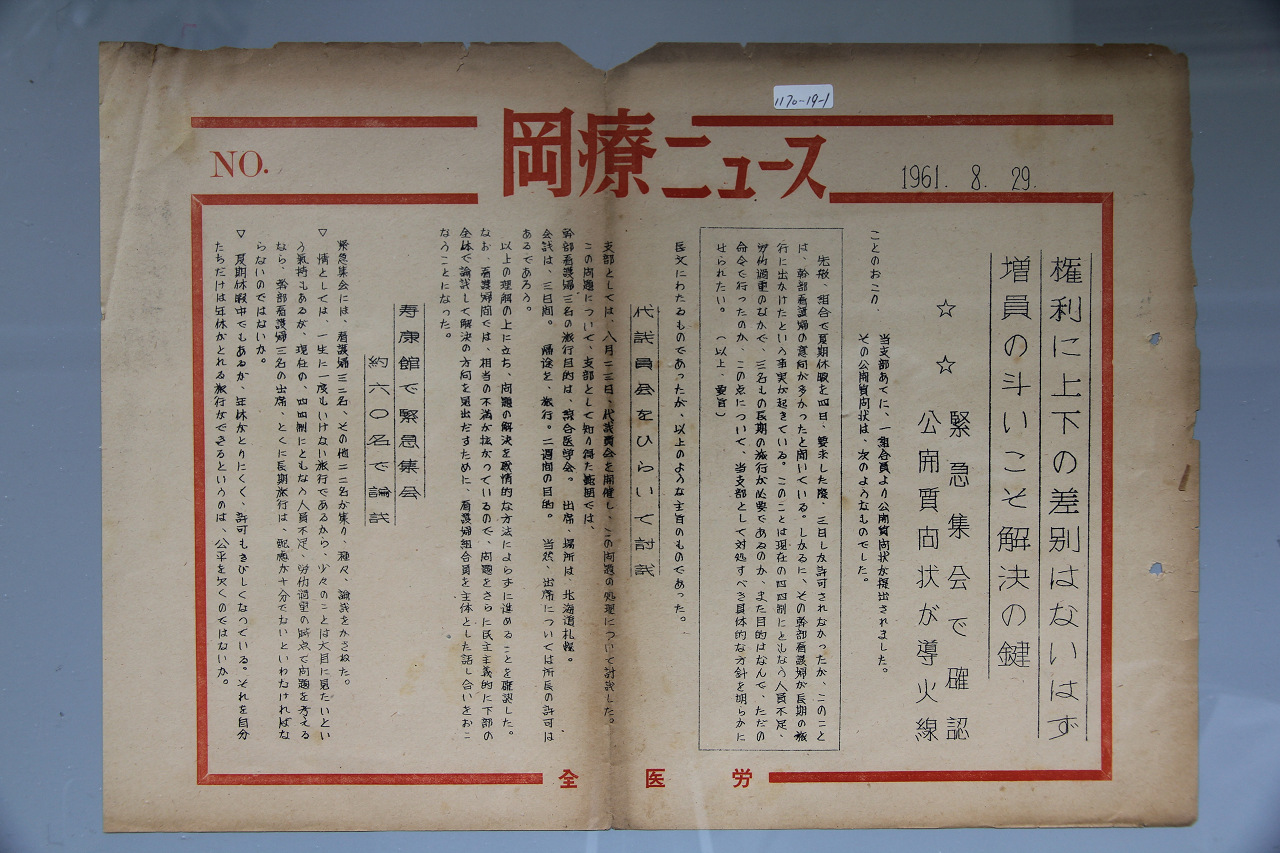 1170-19-1
岡療ニュース
NO.
1961. 8. 29.
権利に上下の差別はないはず
増員の斗いこそ解決の鍵
☆ ☆ 緊急集会で確認
公開質向状が導火線
ことのおこり
当支部あてに、一組合員より公開質向状が提出されました。
その公開質向状は、次のようなものでした。
先般、組合で夏期休暇を四日、要求した際、三日しか許可されなかったが、このこと
は、幹部看護婦の意向が多かったと聞いている。しかるに、その幹部看護婦が長期の旅
行に出かけたという事実が起きている。このことは現在の四四制にともなう人員不足、
労仂過重のなかで、三名もの長期の旅行が必要であるのか、また目的はなんで、ただの
命令で行ったのか、この点について、当支部として対処すべき具体的な方針を明らかに
せられたい。 (以上、要旨)
長文にわたるものであったが、以上のような主旨のものであった。
代議員会をひらいて討議
支部としては、八月二三日、代議員会を開催し、この向題の処理について討議した。
この向題について、支部として知り得た範囲では、
幹部看護婦三名の旅行目的は、綜合医学会。 出席、場所は、北海道札幌。
会議は、三日間。 帰途を、旅行。二週間の目的。 当然、出席については所長の許可は
あるであろう。
以上の理解の上に立ち、向題の解決を感情的な方法によらずに進めることを確認した。
なお、看護婦間では、相当の不満が拡がっているので、向題をさらに民主主義的に下部の
全体で論議して解決の方向を見出だすために、看護婦組合員を主体とした話し合いをおこ
なうことになった。
寿康館で緊急集会
約六〇名で論議
緊急集会には、看護婦三二名、その他二二名が集り、種々、論議をかさねた。
▽ 情としては、一生に一度もいけない旅行であるから、少々のことは大目に見たいとい
う気持もあるが、現在の、四四制にともなう人員不足、労仂過重の時点で向題を考える
なら、幹部看護婦三名の出席、とくに長期旅行は、配慮が十分でないといわなければな
らないのではないか。
▽ 夏期休暇中でもあるが、年休がとりにくく、許可もきびしくなっている。それを自分
たちだけは年休がとれる旅行ができるというのは、公平を欠くのではないか。
全医労